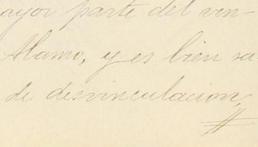 ayor parte del vin-
Alamo, y es bien sa
de desvinculacion